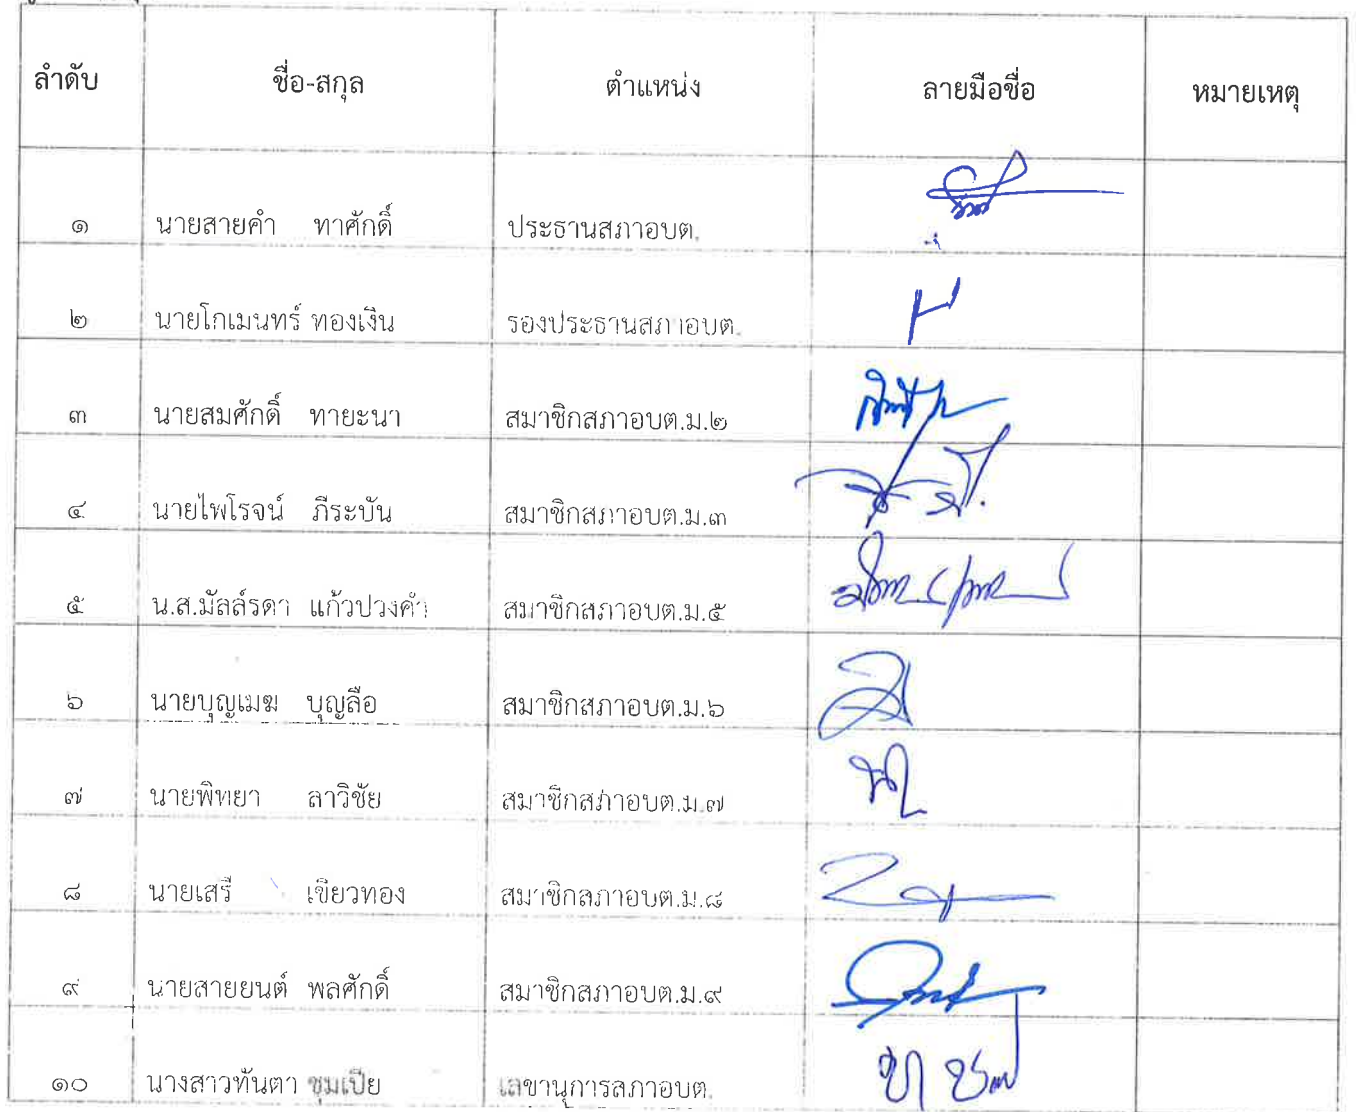 ลำดับ ชื่อ-สกุล ตำแหน่ง ลายมือชื่อ หมายเหตุ
๑ นายสายคำ ทาศักดิ์ ประธานสภาอบต.
๒ นายโกเมนทร์ ทองเงิน รองประธานสภาอบต.
๓ นายสมศักดิ์ ทายะนา สมาชิกสภาอบต.ม.๒
๔ นายไพโรจน์ ภีระบัน สมาชิกสภาอบต.ม.๓
๕ น.ส.มัลล์รดา แก้วปวงคำ สมาชิกสภาอบต.ม.๕
๖ นายบุญเมฆ บุญลือ สมาชิกสภาอบต.ม.๖
๗ นายพิทยา ลาวิชัย สมาชิกสภาอบต.ม.๗
๘ นายเสรี เขียวทอง สมาชิกสภาอบต.ม.๘
๙ นายสายยนต์ พลศักดิ์ สมาชิกสภาอบต.ม.๙
๑๐ นางสาวทันตา ชุมเปีย เลขานุการสภาอบต.